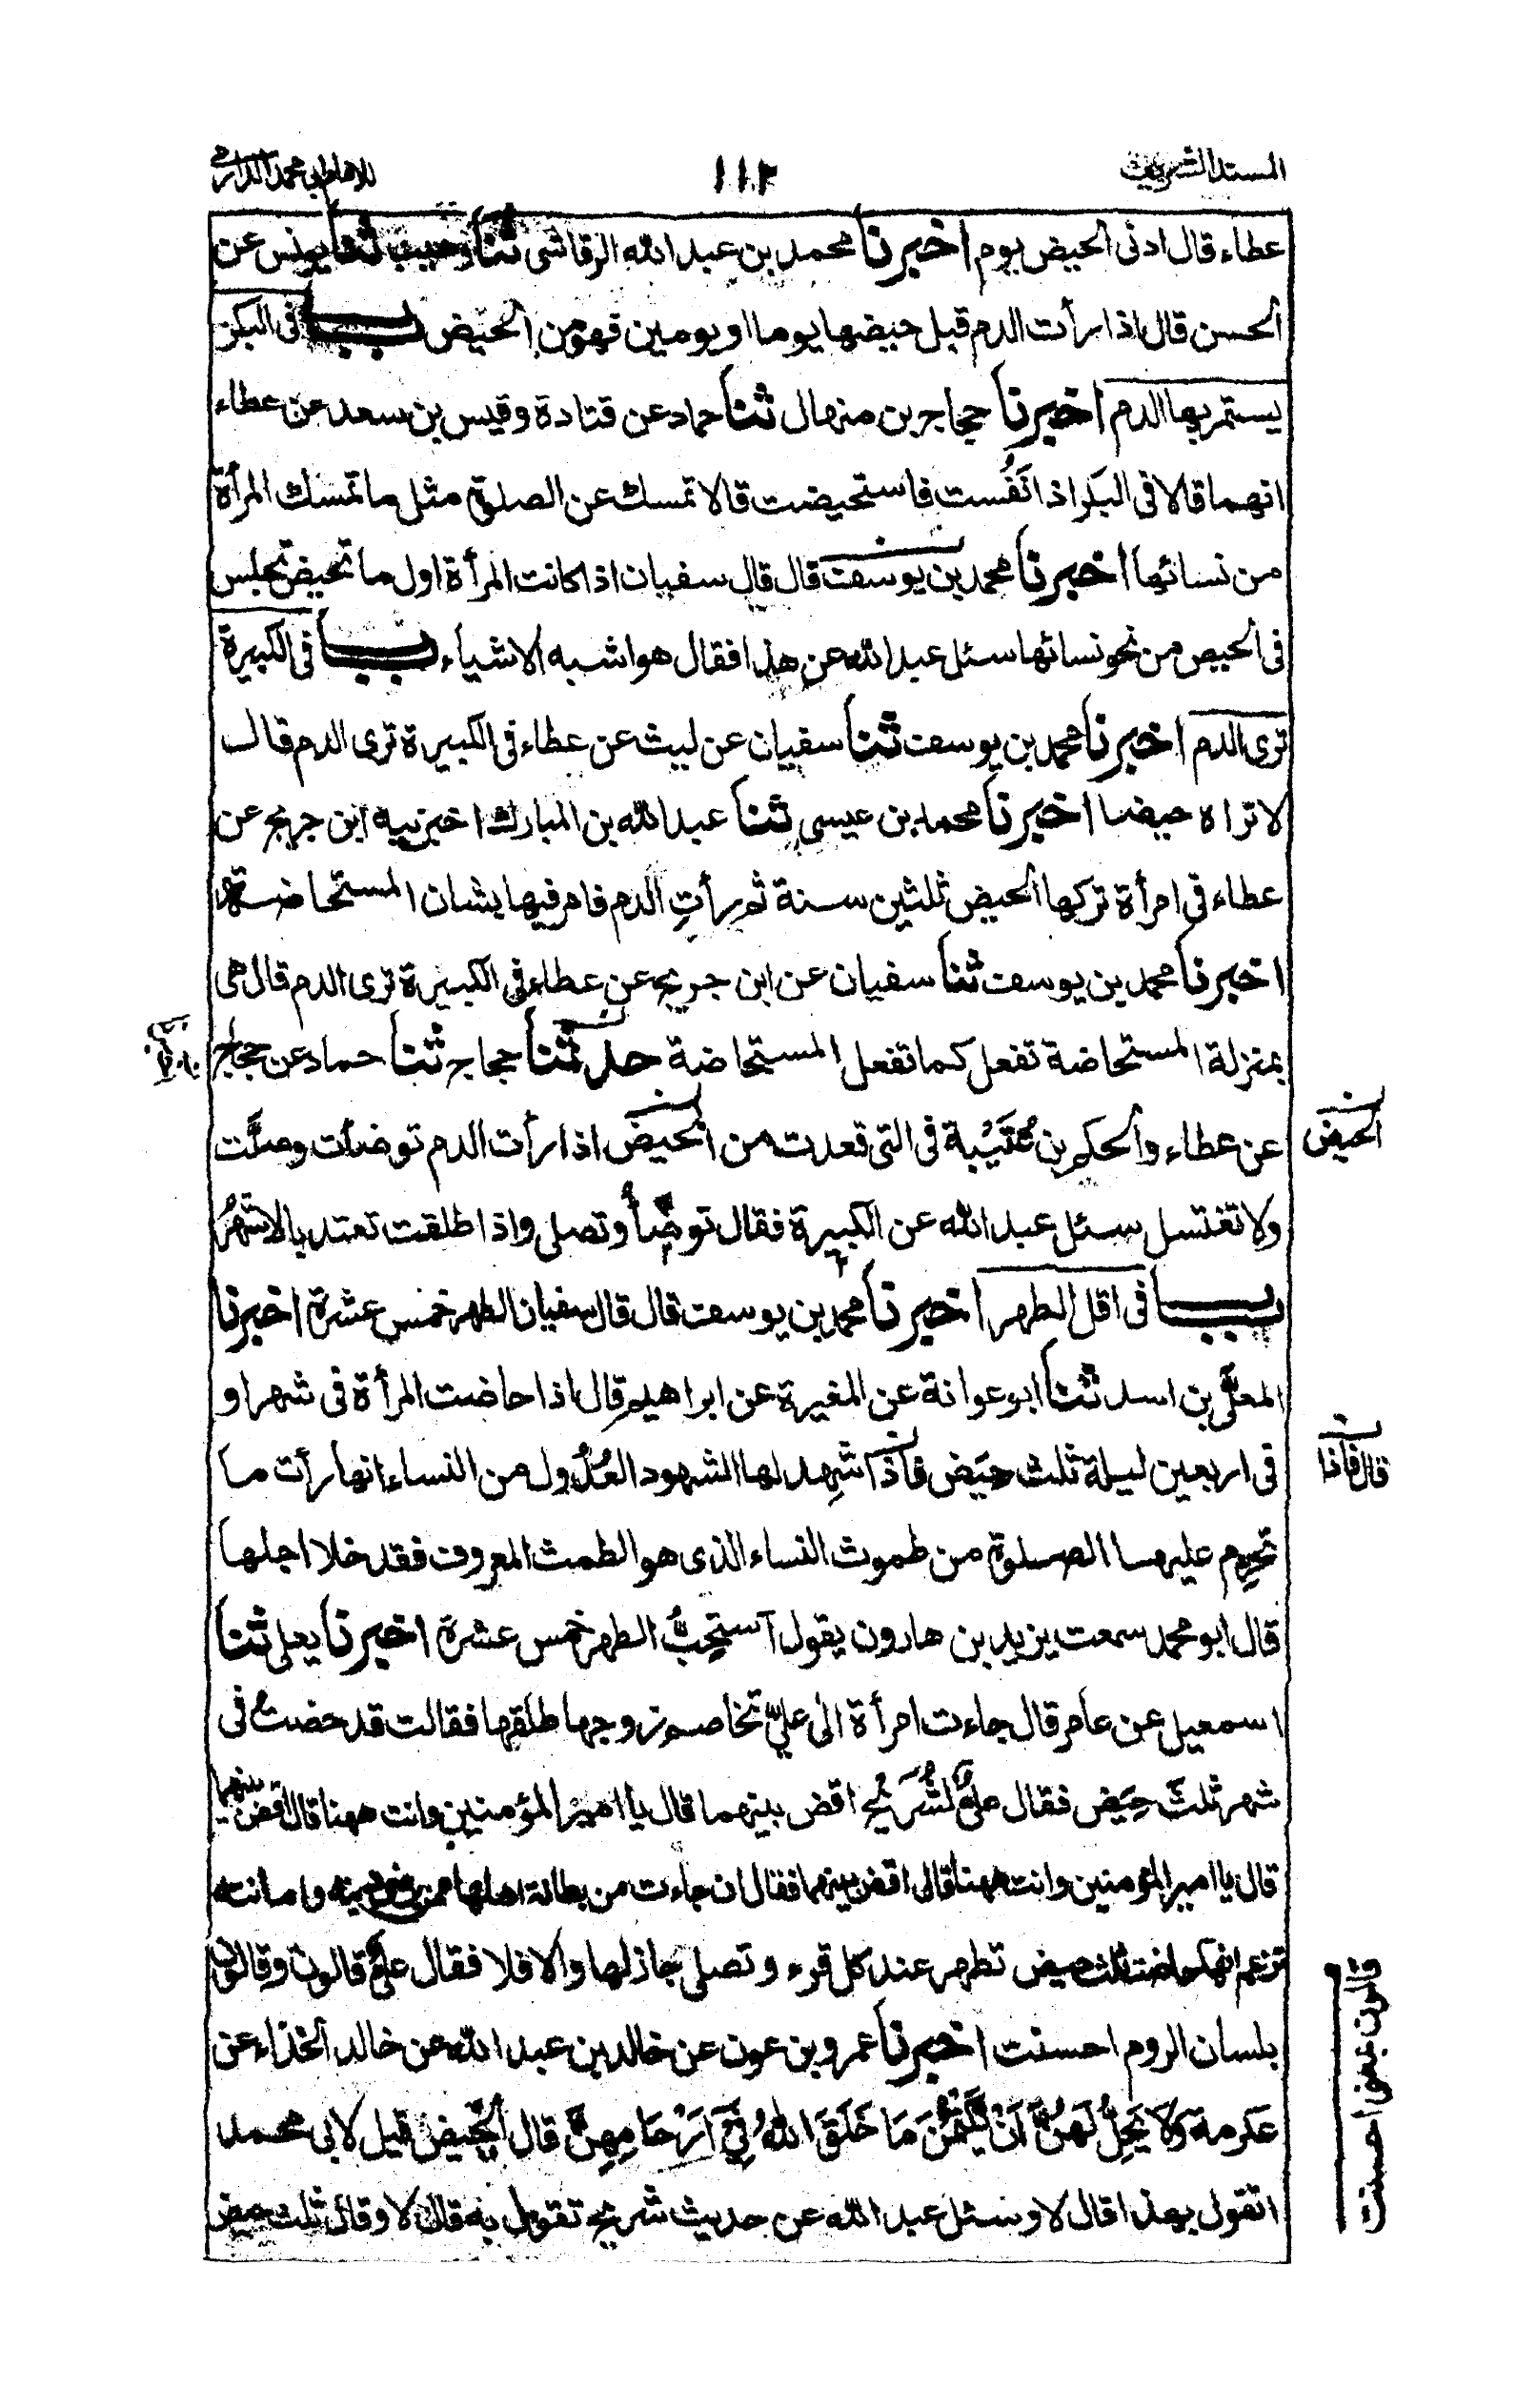 المسند الشريف
١١٢
للامام ابي محمد الدارمي
عطاء قال ادنى الحيض يوم اخبرنا محمد بن عبد الله الرقاشى ثنا وهيب ثنا يونس عن
الحسن قال اذا رأت الدم قبل حيضها يوما او يومين فهو من الحيض باب فى البكر
يستمر بها الدم اخبرنا حجاج بن منهال ثنا حماد عن قتادة وقيس بن سعد عن عطاء
انهما قالا فى البكر اذا نَفُست فاستحيضت قالا تمسك عن الصلوة مثل ما تمسك المرأة
من نسائها اخبرنا محمد بن يوسف قال قال سفيان اذا كانت المرأة اول ما تحيض تجلس
فى الحيض من نحو نسائها سئل عبد الله عن هذا فقال هو اشبه الاشياء باب فى الكبيرة
ترى الدم اخبرنا محمد بن يوسف ثنا سفيان عن ليث عن عطاء فى الكبيرة ترى الدم قال
لا تراه حيضا اخبرنا محمد بن عيسى ثنا عبد الله بن المبارك اخبرنيه ابن جريج عن
عطاء فى امرأة تركها الحيض ثلثين سنة ثم رأتِ الدم فامر فيها بشان المستحاضة
اخبرنا محمد بن يوسف ثنا سفيان عن ابن جريج عن عطاء فى الكبيرة ترى الدم قال هى
بمنزلة المستحاضة تفعل كما تفعل المستحاضة حدثنا حجاج ثنا حماد عن حجاج
عن عطاء والحكم بن عُتَيْبة فى التى قعدت من الحيض اذا رأت الدم توضأت وصلَّت
الحيض
ولا تغتسل سئل عبد الله عن الكبيرة فقال توضّأُ وتصلى واذا طلقت تعتد بالاشهُر
باب فى اقل الطهر اخبرنا محمد بن يوسف قال قال سفيان الطهر خمس عشرة اخبرنا
المعلّٰى بن اسد ثنا ابو عوانة عن المغيرة عن ابراهيم قال اذا حاضت المرأة فى شهر او
فى اربعين ليلة ثلث حِيَض فاذا شهِد لها الشهود العُدُول من النساء انها رأت ما
قال فاذا
تحرِم عليها الصلوة من طموث النساء الذى هو الطمث المعروف فقد خلا اجلها
قال ابو محمد سمعت يزيد بن هارون يقول استحِبُّ الطهر خمس عشرة اخبرنا يعلى ثنا
اسمعيل عن عامر قال جاءت امرأة الى عليّ تخاصم زوجها طلقها فقالت قد حضتُ فى
شهر ثلثَ حِيَض فقال عليٌّ لشُرَيْحٍ اقض بينهما قال يا امير المؤمنين وانت ههنا قال اقض بينهما
قال يا امير المؤمنين وانت ههنا قال اقض بينهما فقال ان جاءت من بطانة اهلها ممن يرضى دينه وامانته
تزعم انها حاضت ثلث حيض تطهر عند كل قرء وتصلى جاز لها والا فلا فقال عليٌّ قالون وقالون
بلسان الروم احسنت اخبرنا عمرو بن عون عن خالد بن عبد الله عن خالد الحذاء عن
قالون بمعنى احسنت
عكرمة وَلَا يَحِلُّ لَهُنَّ اَنْ يَّكْتُمْنَ مَا خَلَقَ اللهُ فِىْ اَرْحَامِهِنَّ قال الحيض قيل لابى محمد
اتقول بهذا قال لا وسئل عبد الله عن حديث شريح تقول به قال لا وقال ثلث حيض